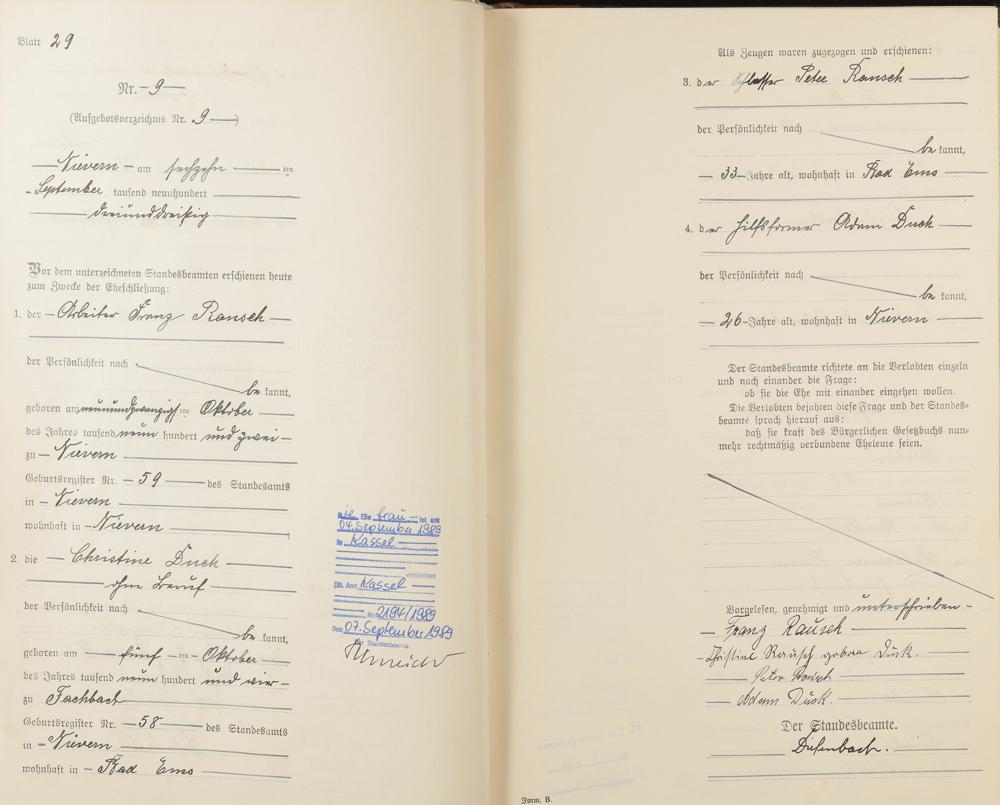 Blatt 29
Nr. — 9 —
(Aufgebotsverzeichnis Nr. 9 —)
— Nievern — am sechzehn — ten
- September tausend neunhundert
— dreiunddreißig
Vor dem unterzeichneten Standesbeamten erschienen heute
zum Zwecke der Eheschließung:
1. der — Arbeiter Franz Rausch —
der Persönlichkeit nach
be kannt,
geboren am neunundzwanzigsten Oktober —
des Jahres tausend neun hundert und zwei —
zu — Nievern —
Geburtsregister Nr. — 59 — des Standesamts
in — Nievern —
wohnhaft in — Nievern —
2. die — Christine Duck —
— ohne Beruf —
der Persönlichkeit nach
be kannt,
geboren am — fünf — ten — Oktober —
des Jahres tausend neun hundert und vier —
zu Fachbach —
Geburtsregister Nr. — 58 — des Standesamts
in — Nievern —
wohnhaft in — Bad Ems —
Die Ehe frau — ist am
04. September 1989
in Kassel —
verstorben
St. Amt Kassel —
Nr. 2194/1989
Den 07. September 1989
Der Standesbeamte
Als Zeugen waren zugezogen und erschienen:
3. der Schlosser Peter Rausch —
der Persönlichkeit nach
be kannt,
— 33 — Jahre alt, wohnhaft in Bad Ems —
4. der Hilfsformer Adam Duck —
der Persönlichkeit nach
be kannt,
— 26 — Jahre alt, wohnhaft in Nievern —
Der Standesbeamte richtete an die Verlobten einzeln
und nach einander die Frage:
ob sie die Ehe mit einander eingehen wollen.
Die Verlobten bejahten diese Frage und der Standes-
beamte sprach hierauf aus:
daß sie kraft des Bürgerlichen Gesetzbuchs nun-
mehr rechtmäßig verbundene Eheleute seien.
Vorgelesen, genehmigt und unterschrieben —
— Franz Rausch —
— Christine Rausch geboren Duck.
— Peter Rausch
— Adam Duck.
Der Standesbeamte.
Diefenbach.
Form. B.